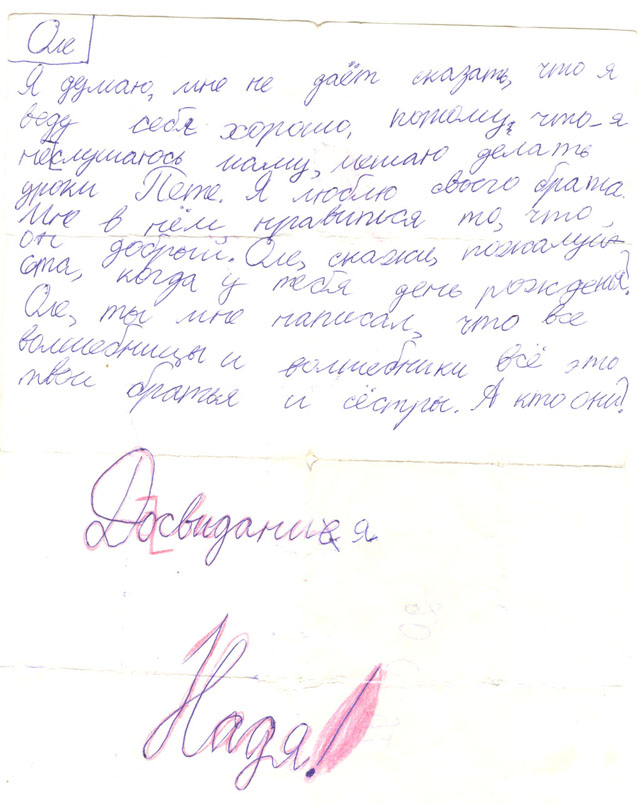 Оле
Я думаю, мне не даёт сказать, что я
веду себя хорошо, потому, что я
неслушаюсь маму, мешаю делать
уроки Пете. Я люблю своего брата.
Мне в нём нравиться то, что,
он добрый. Оле, скажи, пожалуй-
ста, когда у тебя день рожденья?
Оле, ты мне написал, что все
волшебницы и волшебники всё это
твои братья и сёстры. А кто они?
Досвидания
Надя!